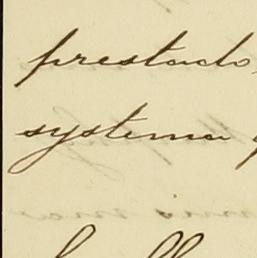 prestado
systema